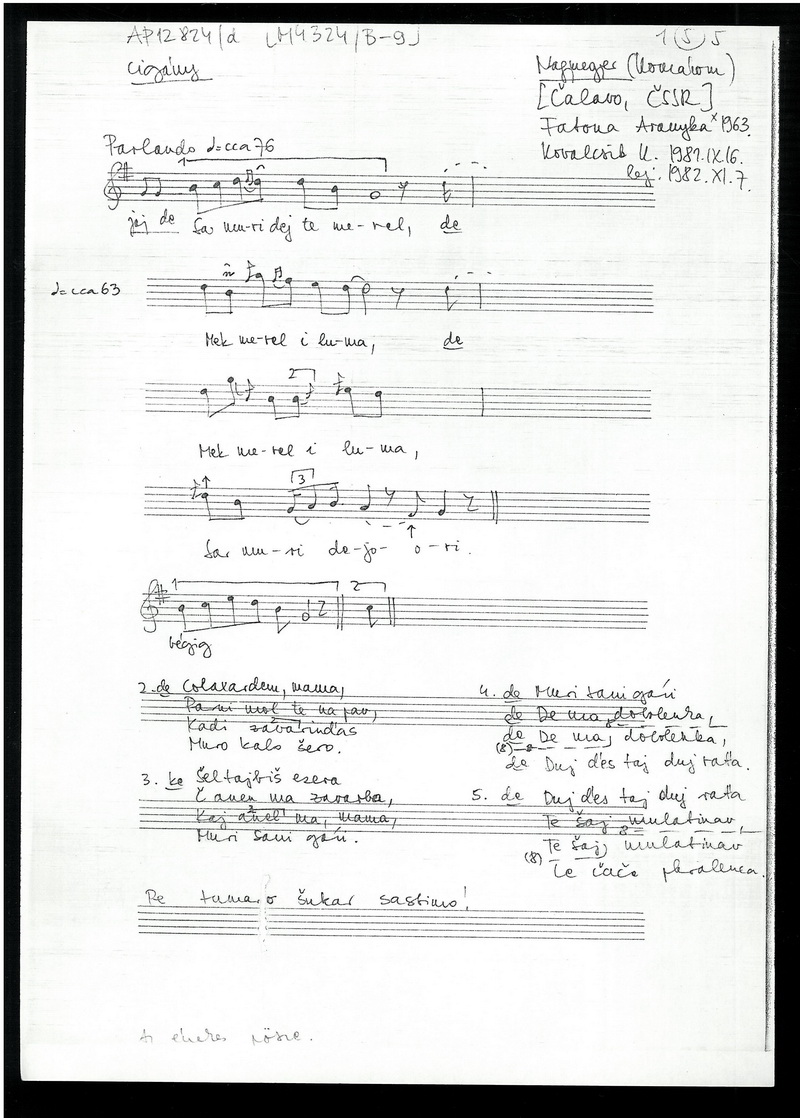 AP12824/d [M4324/B-9]
1 (5) 5
Cigány
Nagymegyer (Komárom)
[Čalovo, ČSSR]
Fatona Aranyka × 1963.
Kovalcsik K. 1981.IX.16.
lej. 1982.XI.7.
Parlando ♩=cca 76
1
jaj de Sar mu-ri dej te me-rel, de
♩=cca 63
Mek me-rel i lu-ma, de
2
Mek me-rel i lu-ma,
3
Sar mu-ri de-jo- o-ri.
1 2
végig
2. de Colaxardem, mama,
Pa ni mol te na pav,
Kadi zavarindas
Muro kalo šero.
3. ke Šeltajbiš ezera
Č anen ma zavarba,
Kaj anel ma, mama,
Muri šani gaži.
4. de Muri šani gaži
de De maj dolenka,
de De maj dolenka,
(8) de Duj d'es taj duj rat'a.
5. de Duj d'es taj duj rat'a
Te šaj mulatinav,
Te šaj mulatinav
(8) Le čače phralenca.
Pe tumaro šukar sastimo!